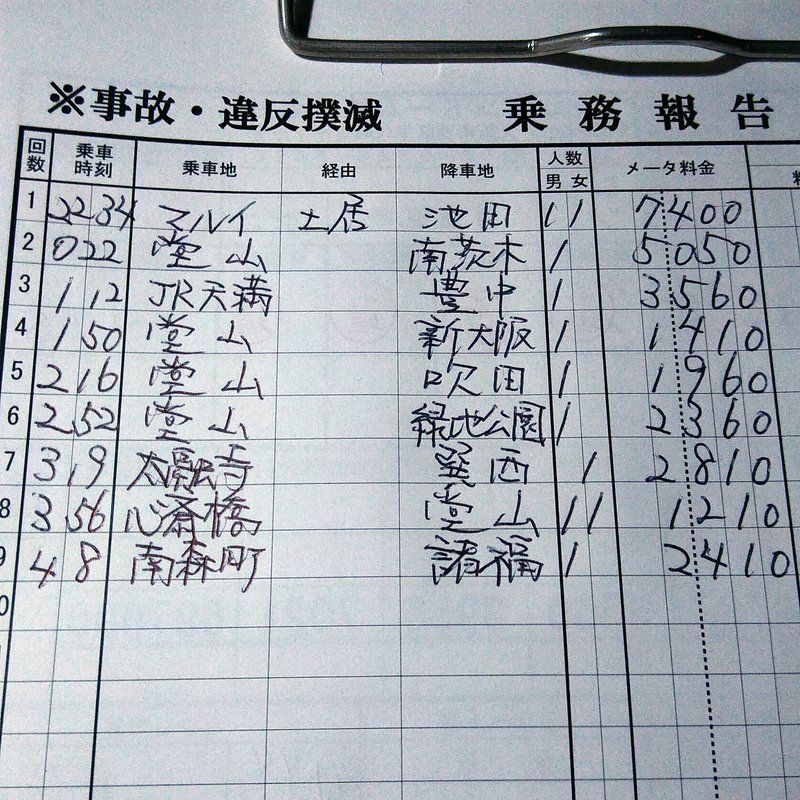 ※事故・違反撲滅 乗務報告
回数 乗車時刻 乗車地 経由 降車地 人数 男 女 メータ料金
1 22 34 マルイ 土居 池田 1 1 7400
2 0 22 堂山 南茨木 1 5050
3 1 12 JR天満 豊中 1 3560
4 1 50 堂山 新大阪 1 1410
5 2 16 堂山 吹田 1 1960
6 2 52 堂山 緑地公園 1 2360
7 3 9 太融寺 巽西 1 2810
8 3 56 心斎橋 堂山 1 1 1210
9 4 8 南森町 諸福 1 2410
0